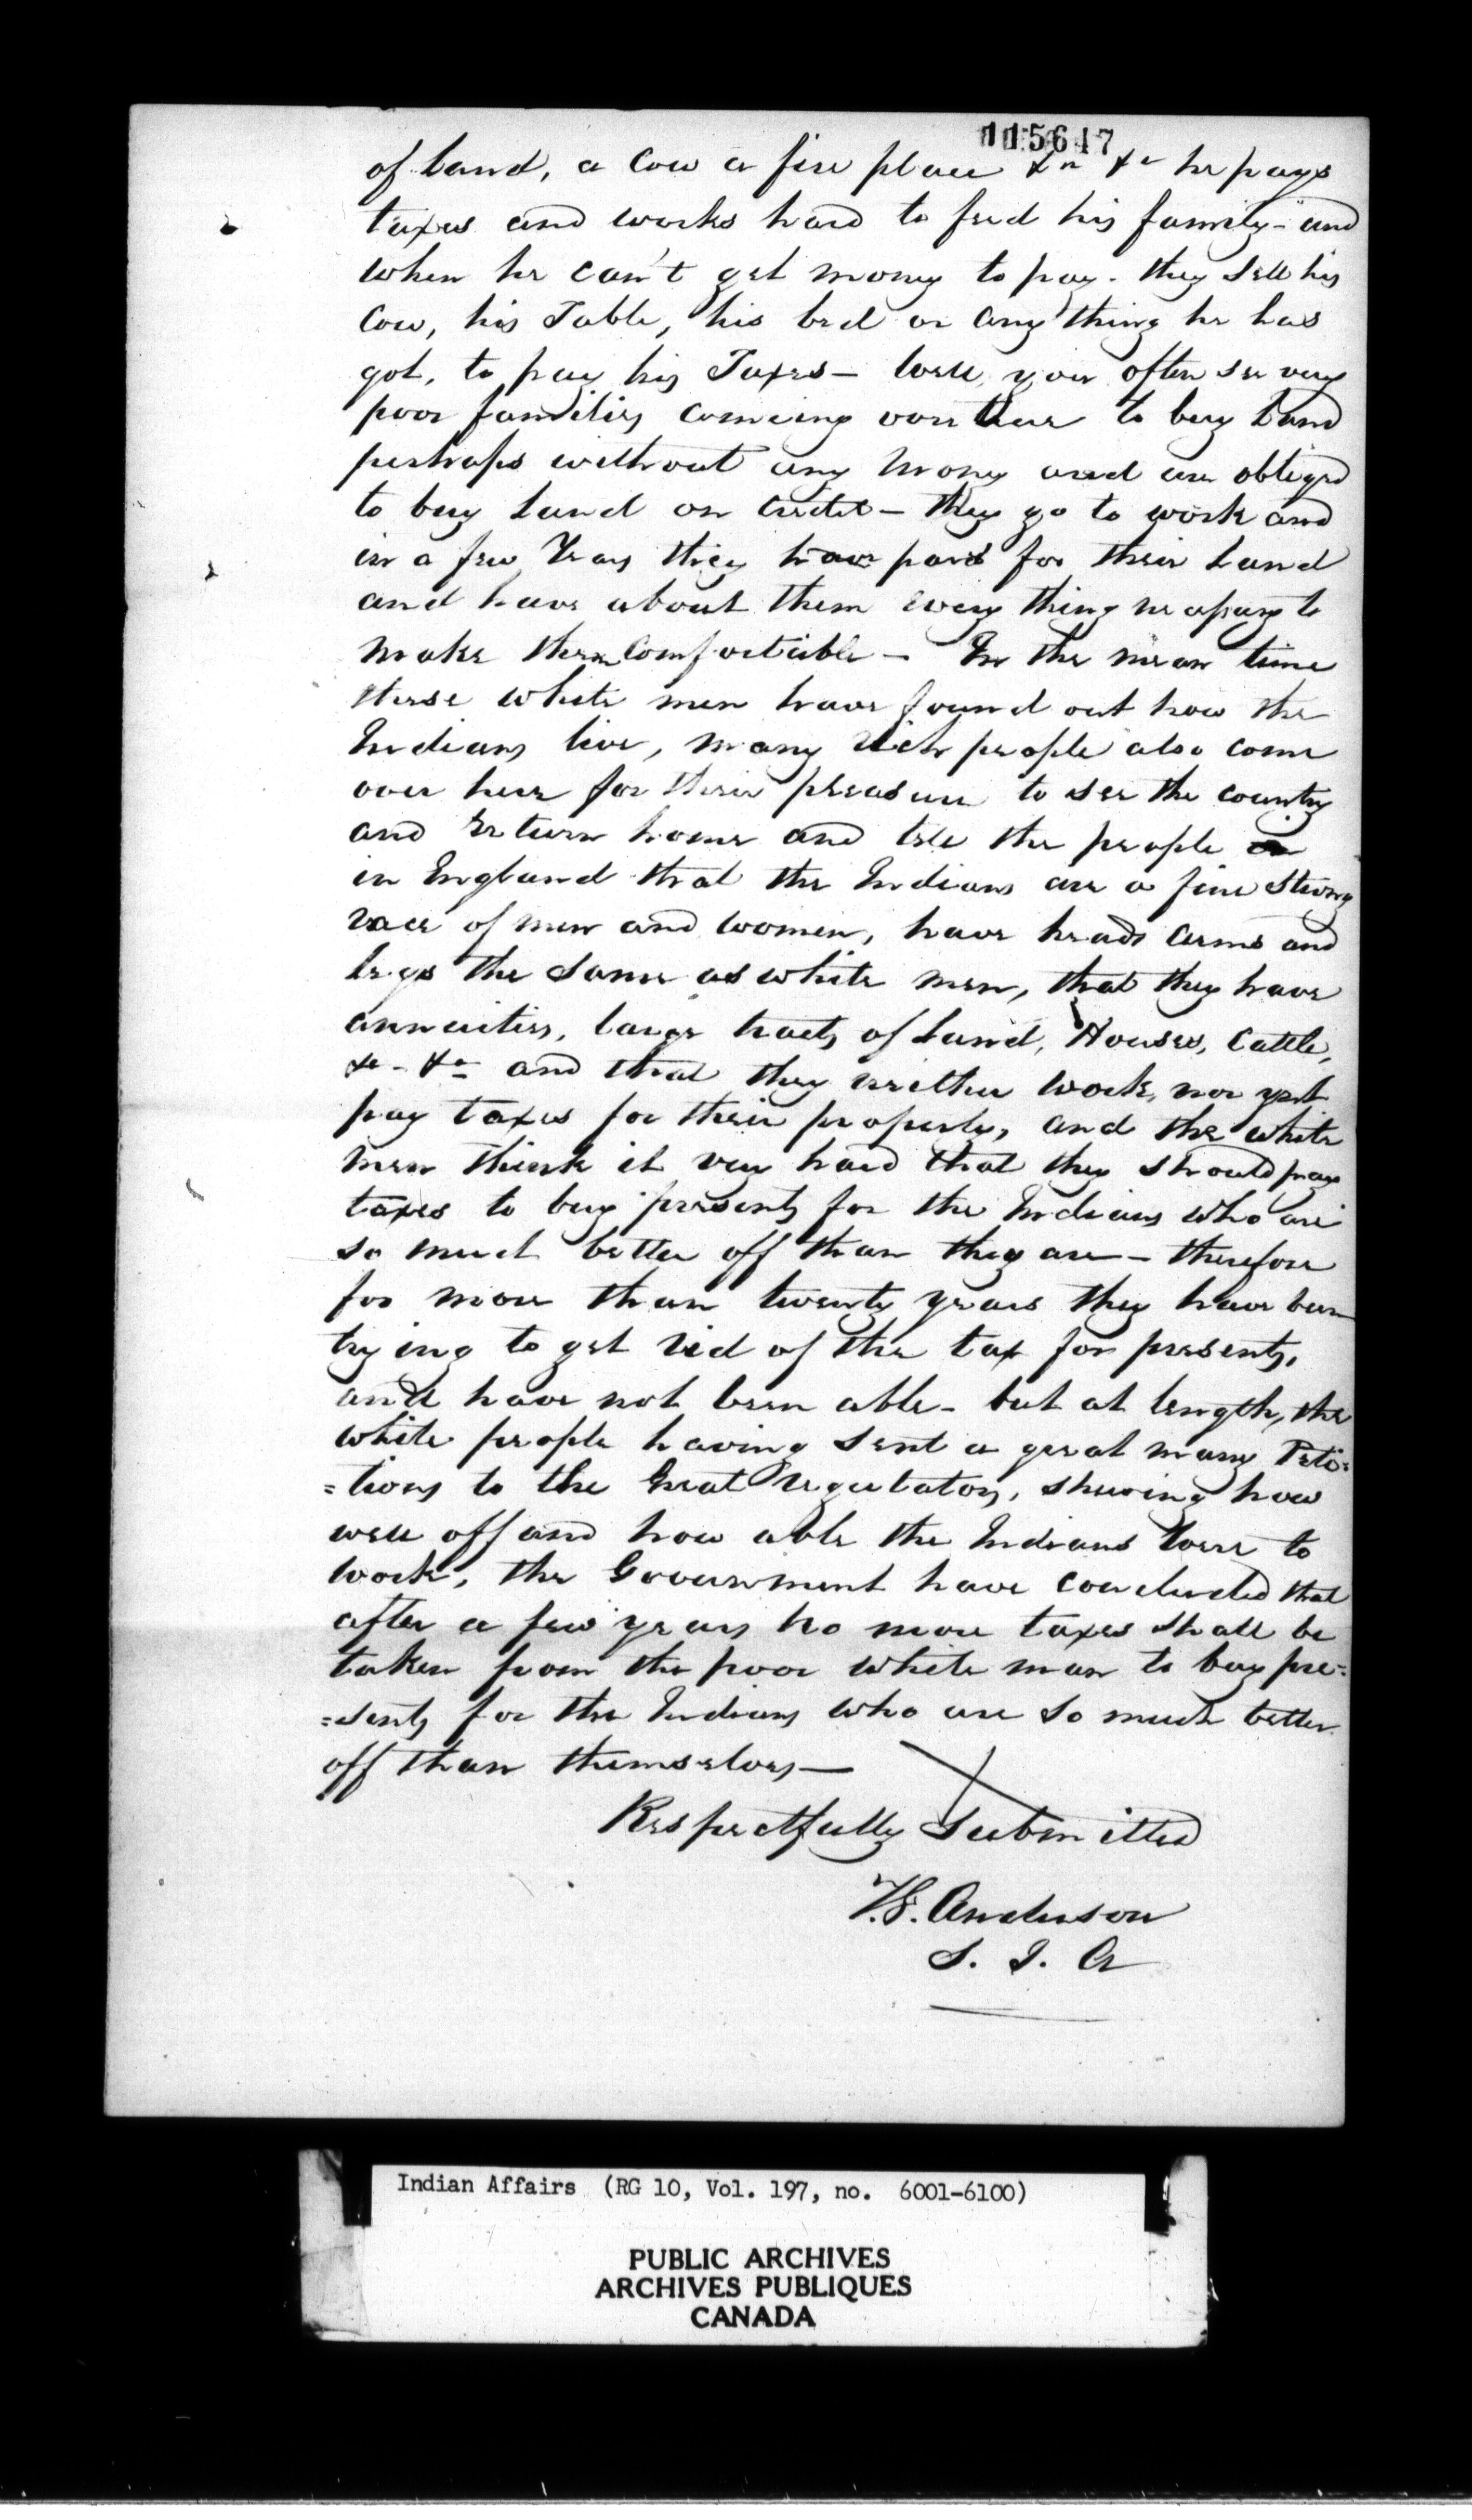 115647
of Land, a Cow a fire place &c &c he pays
taxes and works hard to feed his family - and
when he can't get money to pay - they sell his
Cow, his Table, his bed or any thing he has
got, to pay his Taxes - Well you often see very
poor families comeing over here to buy Land
perhaps without any money and are obliged
to buy Land on Credit - they go to work and
in a few Years they have paid for their Land
and have about them every thing necessary to
make them Comfortable - In the mean time
these white men have found out how the
Indians live, many rich people also come
over here for their pleasure to see the country
and return home and tell the people
in England that the Indians are a fine strong
race of men and women, have heads arms and
legs the same as white men, that they have
annuities, large tracts of Land, Houses, Cattle,
&c - &c and that they neither work, nor yet
pay taxes for their property, and the white
men think it very hard that they should pay
taxes to buy presents for the Indians who are
so much better off than they are - therefore
for more than twenty years they have been
trying to get rid of the tax for presents,
and have not been able - but at length, the
white people having sent a great many Peti=
=tions to the Great regulators, shewing how
well off and how able the Indians were to
work, the Government have concluded that
after a few years no more taxes shall be
taken from the poor white man to buy pre=
=sents for the Indians who are so much better
off than themselves —
Respectfully Submitted
T.G. Anderson
S. I. A
Indian Affairs (RG 10, Vol. 197, no. 6001-6100)
PUBLIC ARCHIVES
ARCHIVES PUBLIQUES
CANADA